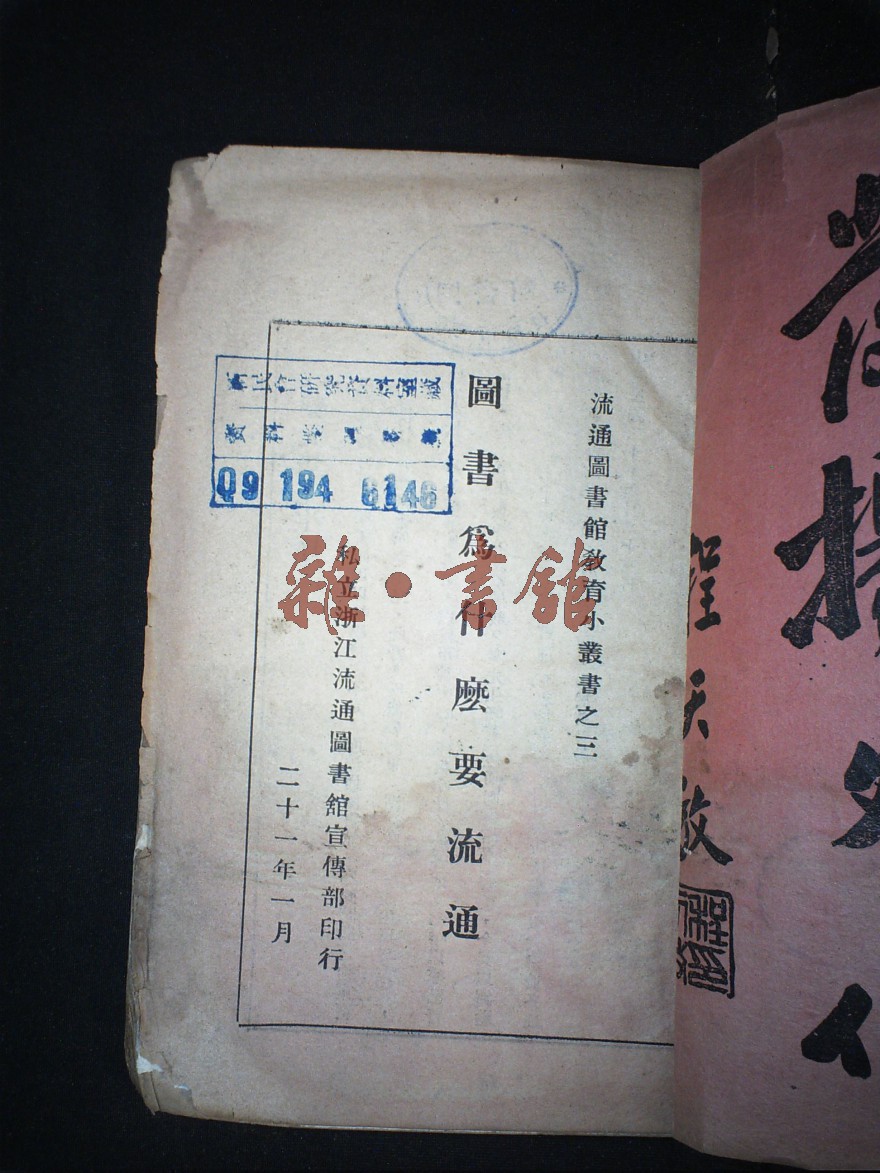 流通圖書館教育小叢書之三
圖書爲什麽要流通
私立浙江流通圖書館宣傳部印行
二十一年一月
資料室藏
資料
Q9 194 6146
雜·書館
程天放